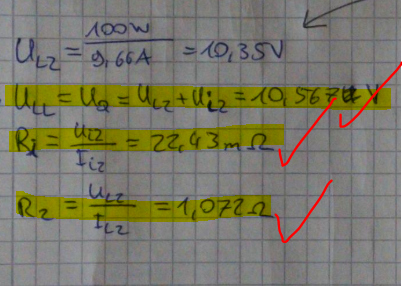 U_L2 = 100W / 9,66A = 10,35V
U_LL = U_Q = U_L2 + U_i2 = 10,567 V
R_i = U_i2 / I_i2 = 22,43 mΩ
R_2 = U_L2 / I_L2 = 1,072 Ω